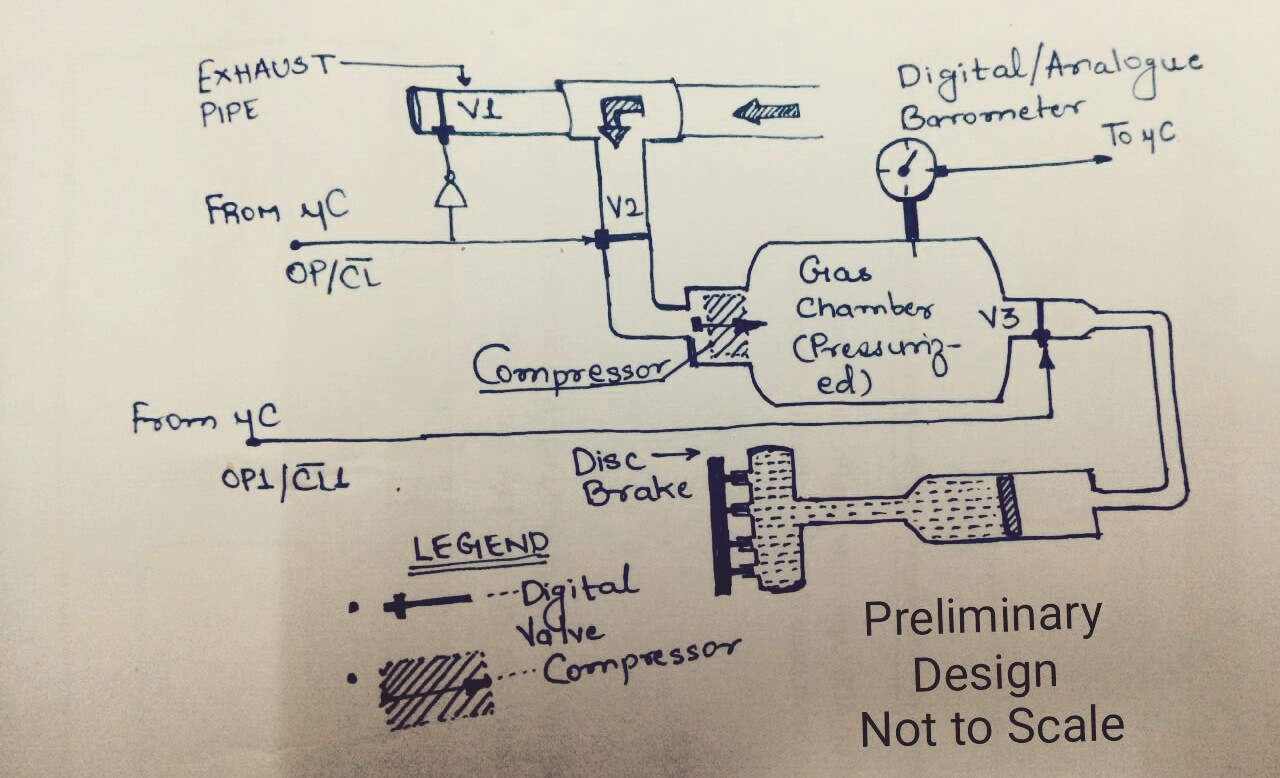 EXHAUST
PIPE
V1
Digital/Analogue
Barometer
To μC
V2
FROM μC
OP/C̅L̅
Gas
Chamber
(Pressuriz-
ed)
V3
Compressor
From μC
OP1/C̅L̅1̅
Disc
Brake
LEGEND
• ---Digital
Valve
• ....Compressor
Preliminary
Design
Not to Scale